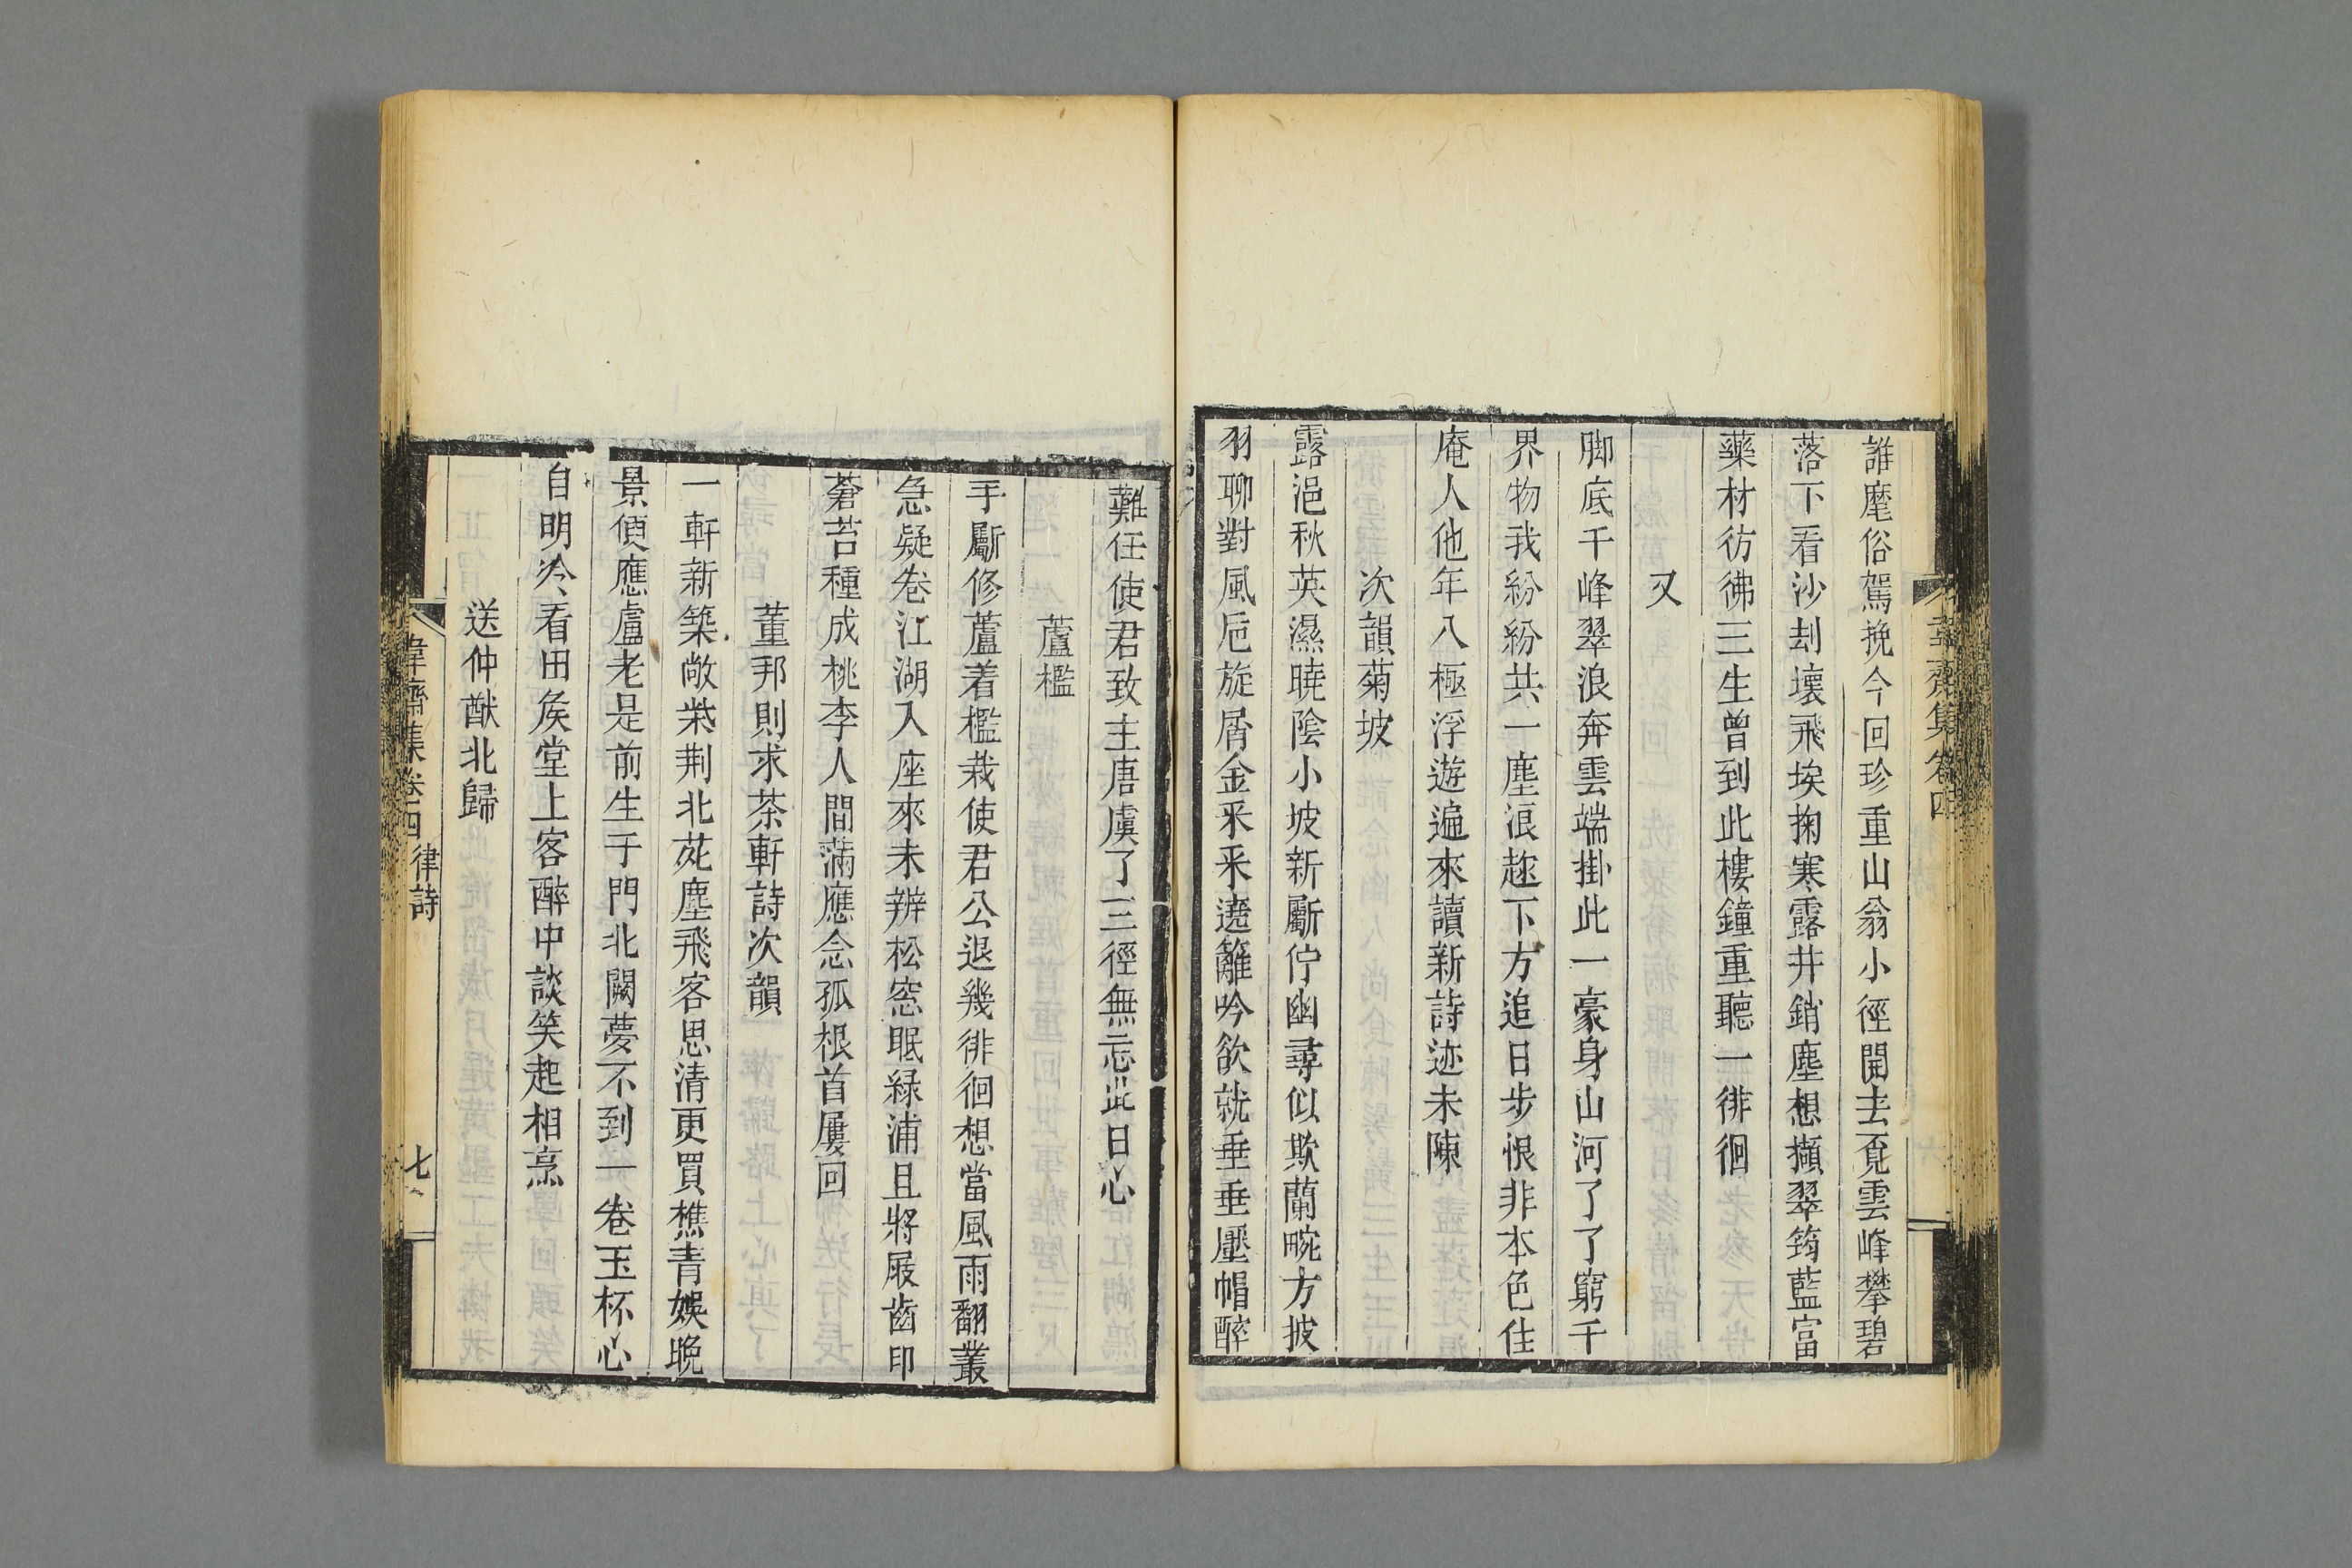 誰麾俗駕挽今回珍重山翁小徑開去覔雲峰攀碧
落下看沙刦壞飛埃掬寒露井銷塵想擷翠筠藍富
藥材彷彿三生曾到此樓鐘重聽一徘徊
又
脚底千峰翠浪奔雲端掛此一豪身山河了了窮千
界物我紛紛共一塵浪趂下方追日步恨非本色住
庵人他年八極浮遊遍來讀新詩迹未陳
次韻菊坡
露浥秋英濕曉陰小坡新斸佇幽尋似欺蘭畹方披
羽聊對風巵旋屑金采采遶籬吟欲就垂垂壓帽醉
難任使君致主唐虞了三徑無忘此日心
蘆檻
手斸修蘆着檻栽使君公退幾徘徊想當風雨翻叢
急疑卷江湖入座來未辦松窓眠緑浦且將屐齒印
蒼苔種成桃李人間滿應念孤根首屢回
董邦則求茶軒詩次韻
一軒新築敞柴荆北苑塵飛客思清更買樵青娛晚
景便應盧老是前生千門北闕夢不到一卷玉杯心
自明冷看田矦堂上客醉中談笑起相烹
送仲猷北歸
韋齋集卷四 律詩
七